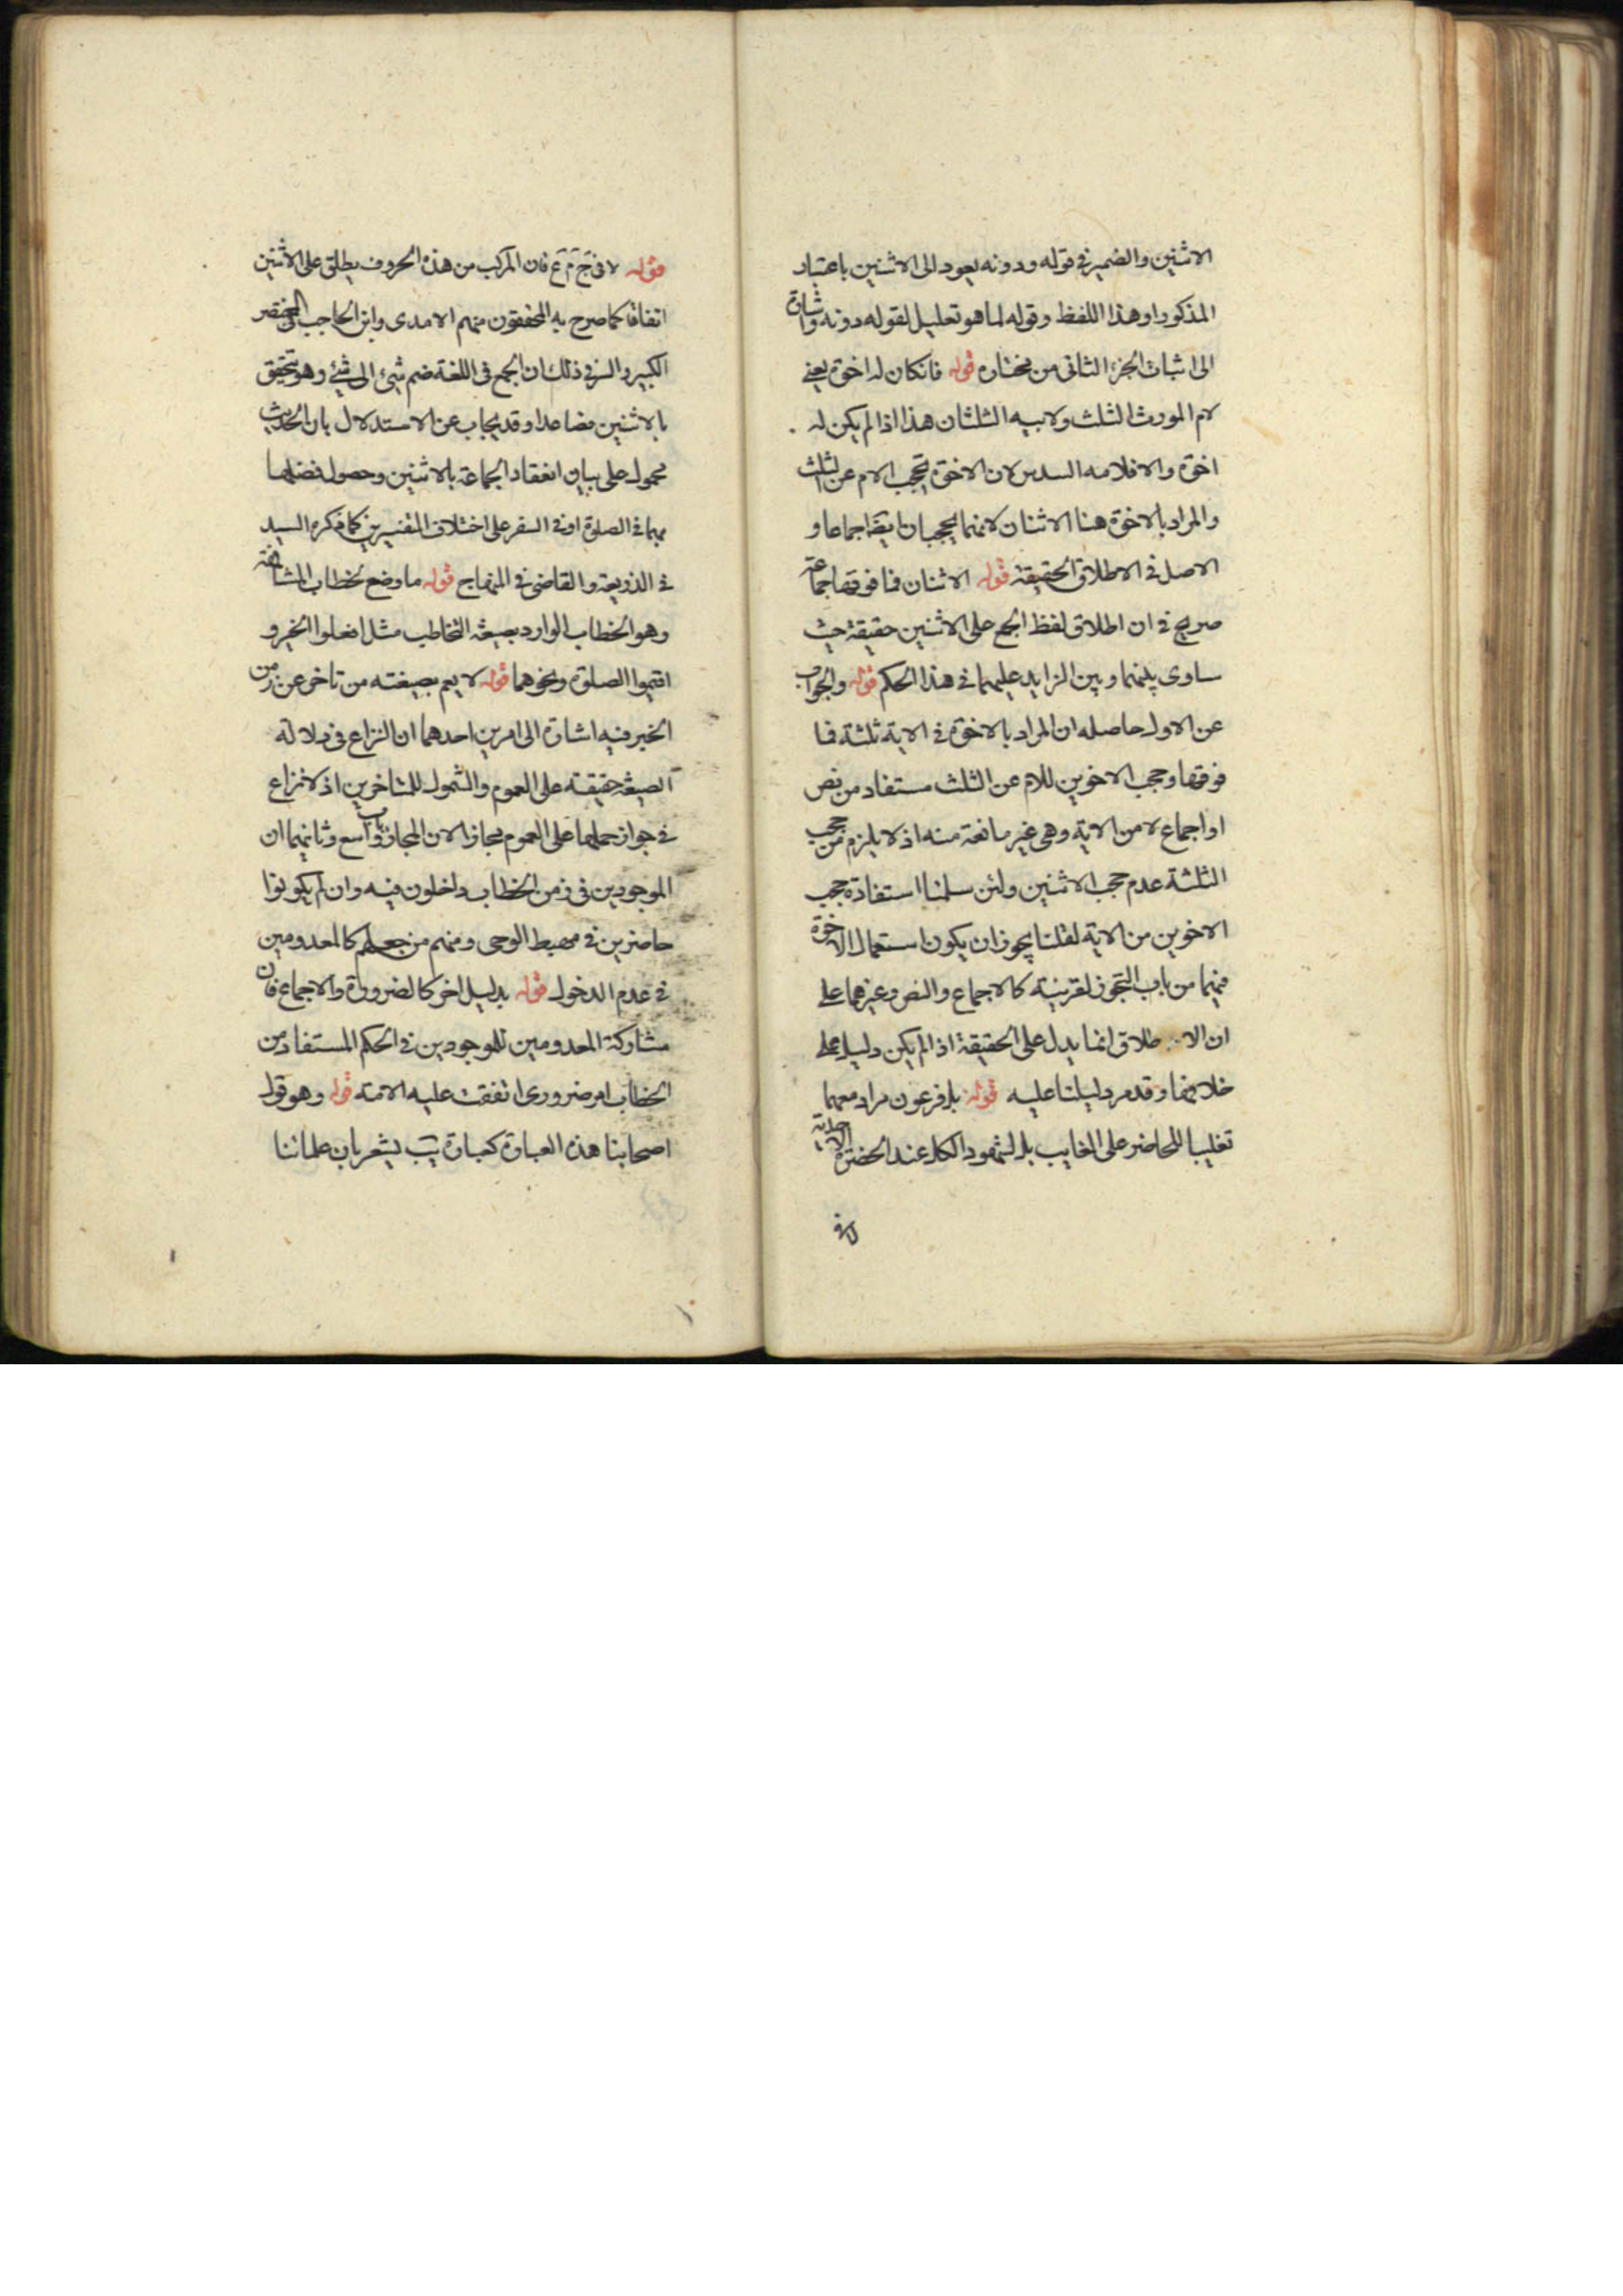 الاثنين والضمير في قوله ودونه يعود الى الاثنين باعتبار
المذكور او هذا اللفظ وقوله لما هو تعليل لقوله دونه واشارة
الى اثبات الجزء الثاني من مختاره قوله فانكان له اخوة يعني
لام المورث الثلث ولابيه الثلثان هذا اذا لم يكن له
اخوة والا فلامه السدس لان الاخوة تحجب الام عن الثلث
والمراد بالاخوة هنا الاثنان لانهما يحجبان ايضا اجماعا و
الاصل في الاطلاق الحقيقة قوله الاثنان فما فوقها جماعة
صريح في ان اطلاق لفظ الجمع على الاثنين حقيقة حيث
ساوى بينهما وبين الزايد عليهما في هذا الحكم قوله والجواب
عن الاول حاصله ان المراد بالاخوة في الاية ثلثة فما
فوقها وحجب الاخوين للام عن الثلث مستفاد من نص
او اجماع لا من الاية وهي غير مانعة منه اذ لا يلزم من حجب
الثلثة عدم حجب الاثنين ولئن سلمنا استفادة حجب
الاخوين من الاية لقلنا يجوز ان يكون استعمال الاخوة
فيهما من باب التجوز لقرينة كالاجماع والنص وغيرهما على
ان الاطلاق انما يدل على الحقيقة اذا لم يكن دليل على
خلافها وقد مر دليلنا عليه قوله بل فرعون مراد معهما
تغليبا للحاضر على الغايب بل لشهود الكل عند الحضرة الالهية
قوله لا في ج م ع فان المركب من هذه الحروف يطلق على الاثنين
اتفاقا كما صرح به المحققون منهم الامدى وابن الحاجب في المختصر
الكبير والسر في ذلك ان الجمع في اللغة ضم شيئ الى شيئ وهو تحقق
بالاثنين فصاعدا وقد يجاب عن الاستدلال بان الحديث
محمول على بيان انعقاد الجماعة بالاثنين وحصول فضلها
بهما في الصلوة او في السفر على اختلاف المفسرين كما ذكره السيد
في الذريعة والقاضي في المنهاج قوله ما وضع لخطاب المشافهة
وهو الخطاب الوارد بصيغة التخاطب مثل افعلوا الخير و
اقيموا الصلوة ونحوهما قوله لا يعم بصيغته من تاخر عن زمن
الخبر فيه اشارة الى امرين احدهما ان النزاع في دلالة
الصيغة حقيقة على العموم والشمول للمتاخرين اذ لا نزاع
في جواز حملها على العموم مجازا لان المجاز باب واسع وثانيهما ان
الموجودين في زمن الخطاب داخلون فيه وان لم يكونوا
حاضرين في مهبط الوحى ومنهم من جعلهم كالمعدومين
في عدم الدخول قوله بدليل اخر كالضرورة والاجماع فان
مشاركة المعدومين للموجودين في الحكم المستفاد من
الخطاب امر ضروري اتفقت عليه الامة قوله وهو قول
اصحابنا هذه العبارة كعبارة يب يشعر بان علمائنا